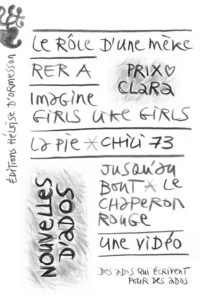 LE RÔLE D'UNE MÈRE
RER A
PRIX
CLARA
IMAGINE
GIRLS LIKE GIRLS
LA PIE * CHILI 73
JUSQU'AU
BOUT * LE
CHAPERON
ROUGE
UNE VIDÉO
NOUVELLES
D'ADOS
DES ADOS QUI ÉCRIVENT
POUR DES ADOS
ÉDITIONS HÉLOÏSE D'ORMESSON